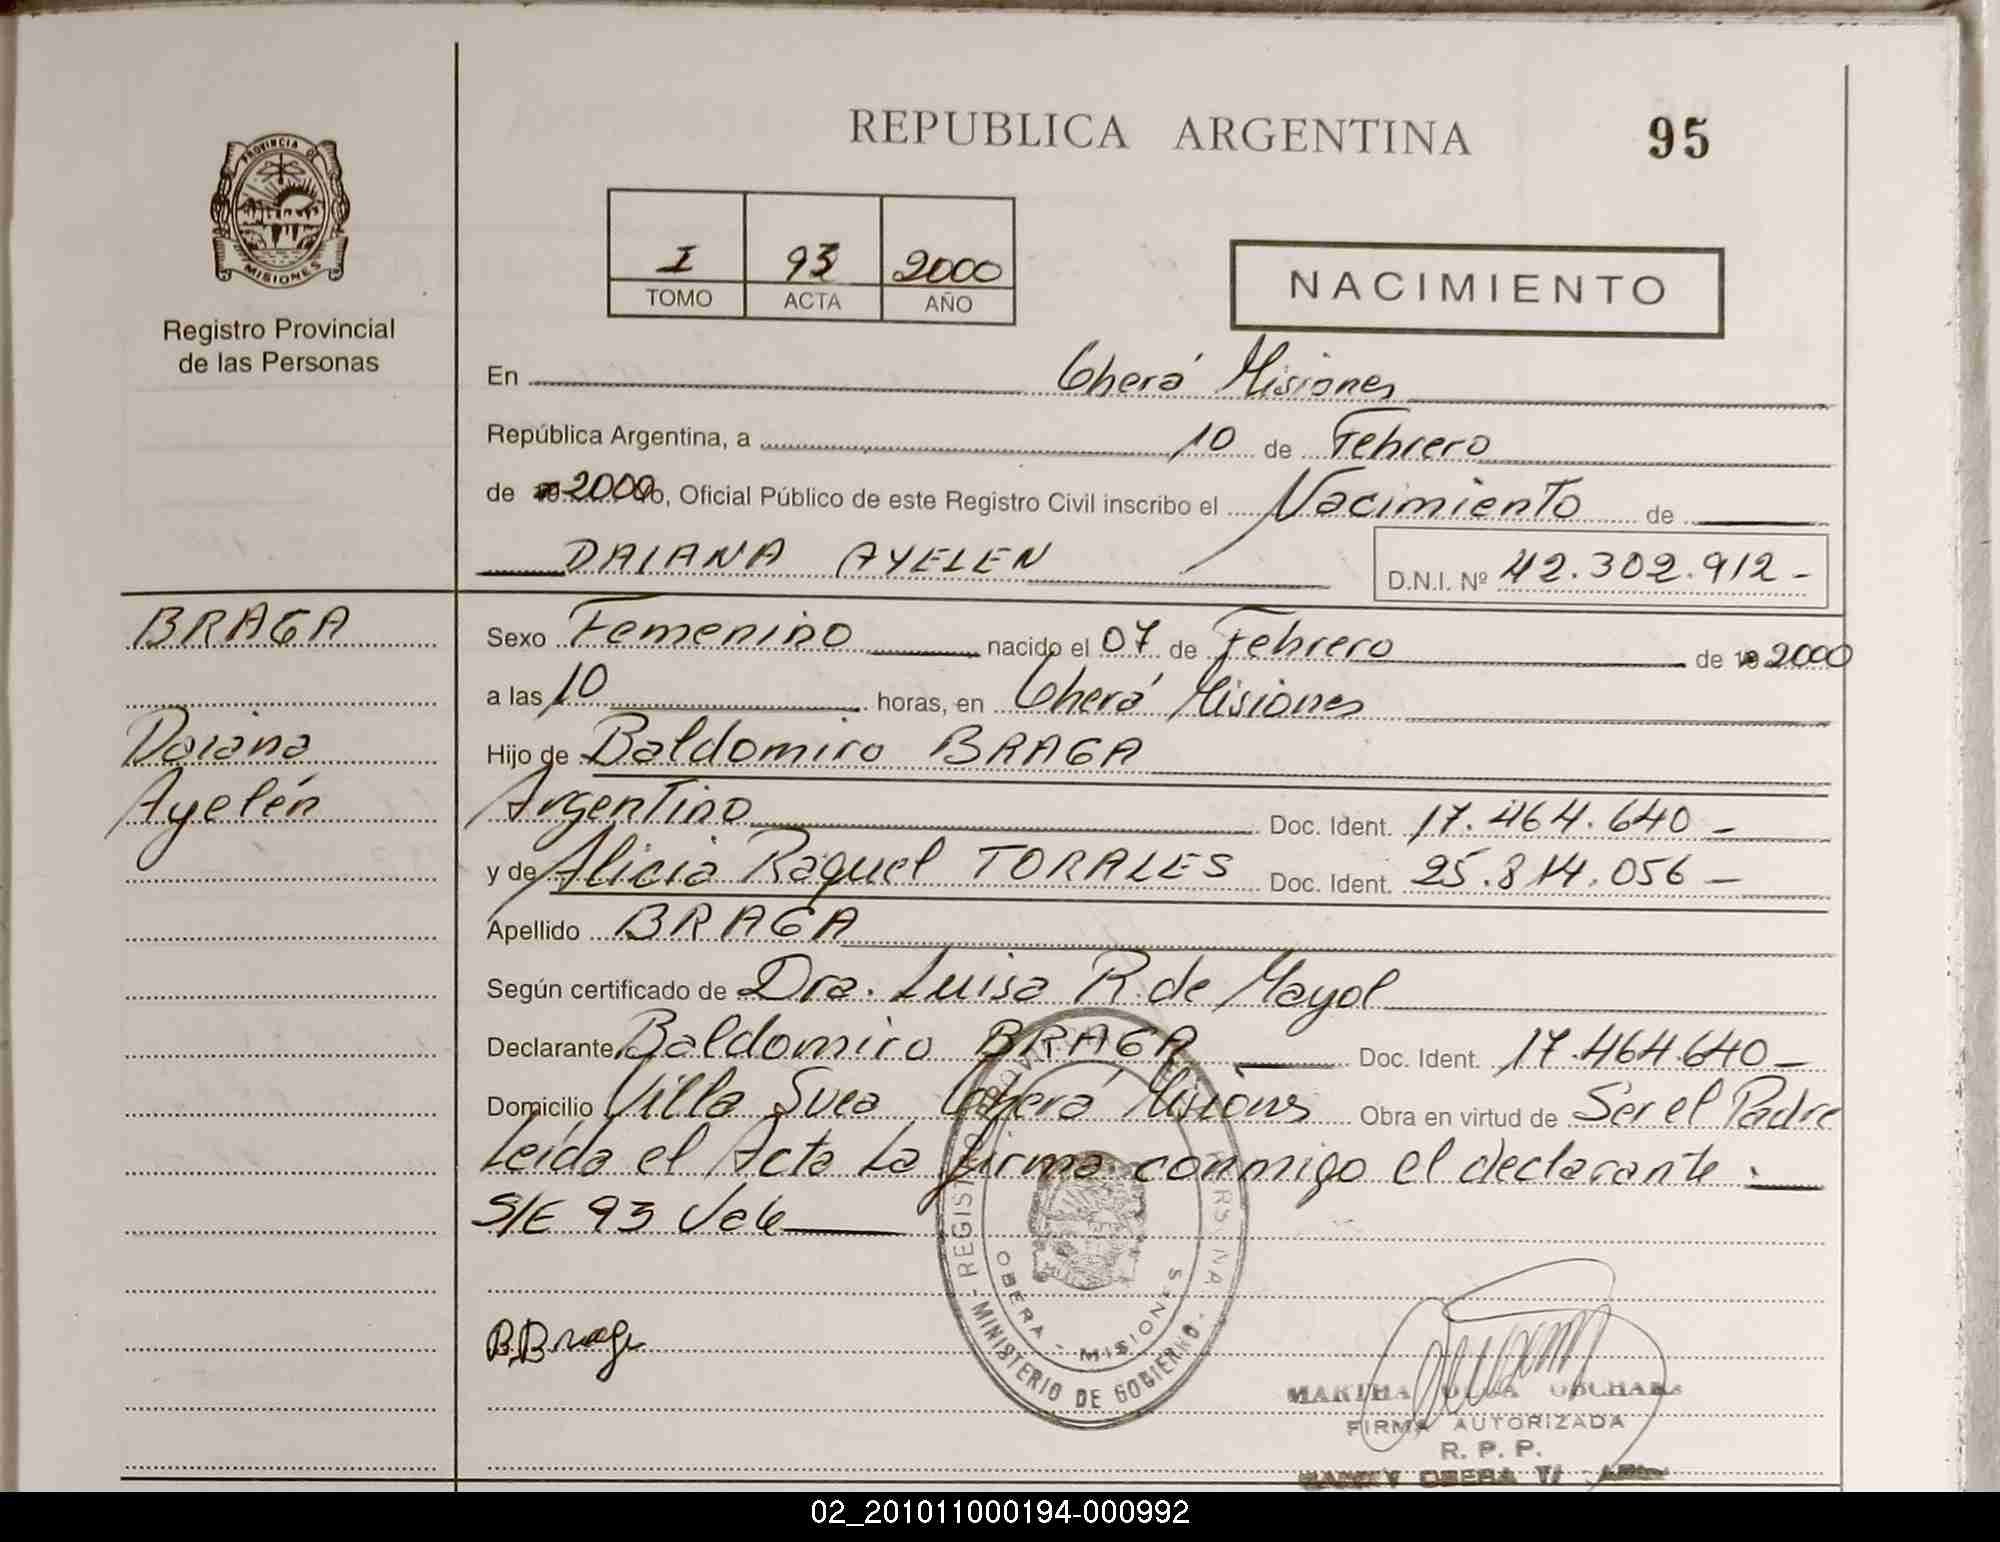 REPUBLICA ARGENTINA
95
PROVINCIA DE
MISIONES
Registro Provincial
de las Personas
I 93 2000
TOMO ACTA AÑO
NACIMIENTO
En Oberá Misiones
República Argentina, a 10 de Febrero
de 2000 yo, Oficial Público de este Registro Civil inscribo el Nacimiento de
DAIANA AYELEN
D.N.I. Nº 42.302.912-
BRAGA
Daiana
Ayelén
Sexo Femenino nacido el 07 de Febrero de 2000
a las 10 horas, en Oberá Misiones
Hijo de Baldomiro BRAGA
Argentino Doc. Ident. 17.464.640-
y de Alicia Raquel TORALES Doc. Ident. 25.814.056-
Apellido BRAGA
Según certificado de Dra. Luisa R. de Mayol
Declarante Baldomiro BRAGA Doc. Ident. 17.464.640-
Domicilio Villa Svea Oberá Misiones Obra en virtud de Ser el Padre
Leída el Acta La firma conmigo el declarante.
S/E 93 Vale
B.Braga
OBERA - MISIONES
MINISTERIO DE GOBIERNO
MARTHA OLGA
FIRMA AUTORIZADA
R. P. P.
OBERA
02_201011000194-000992